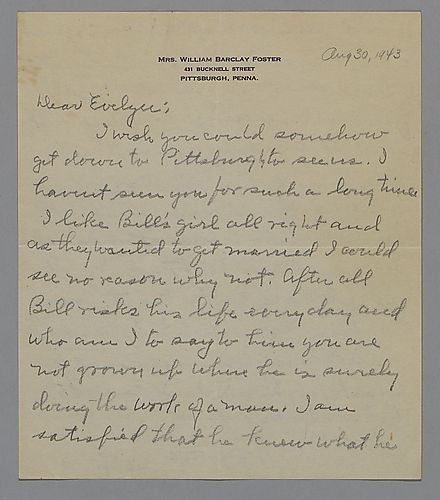 MRS. WILLIAM BARCLAY FOSTER
431 BUCKNELL STREET
PITTSBURGH, PENNA.
Aug 30, 1943
Dear Evelyn:,
I wish you could somehow
get down to Pittsburgh to see us. I
havent seen you for such a long time
I like Bill's girl all right and
as they wanted to get married I could
see no reason why not. After all
Bill risks his life everyday and
who am I to say to him you are
not grown up when he is surely
doing the work of a man. I am
satisfied that he knew what he's